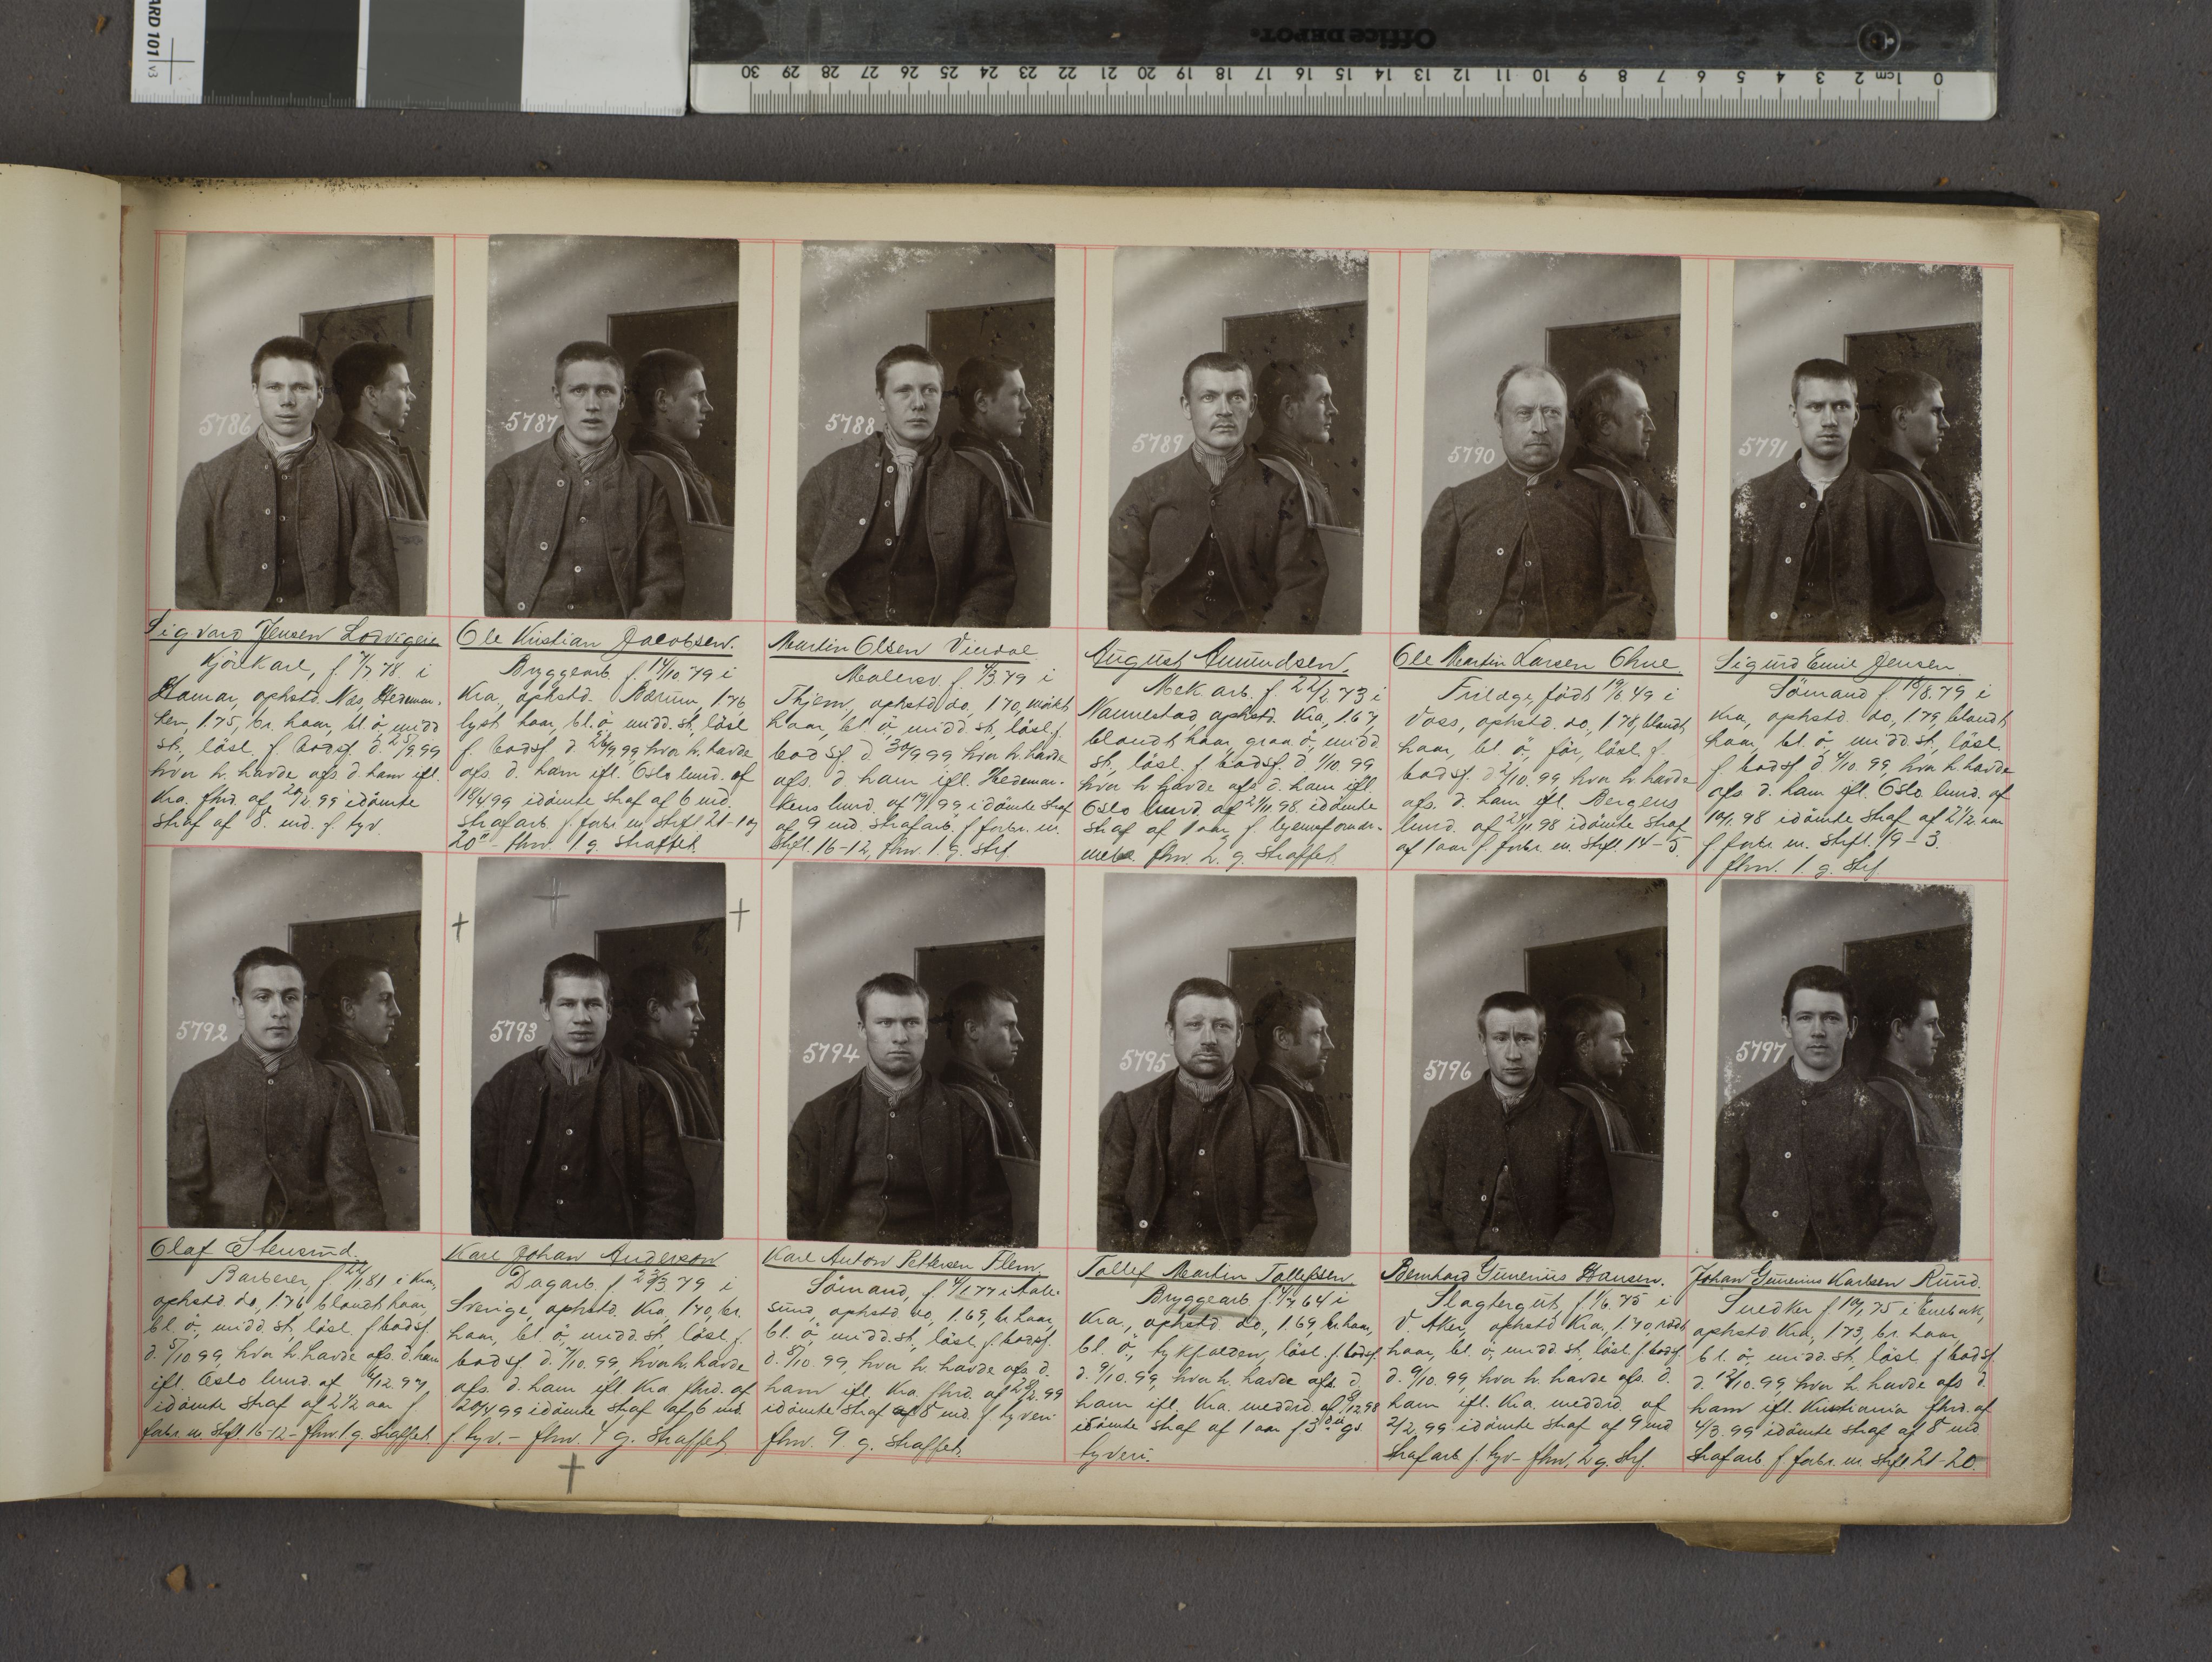 ARD 101 v3
Office DEPOT
0 1cm 2 3 4 5 6 7 8 9 10 11 12 13 14 15 16 17 18 19 20 21 22 23 24 25 26 27 28 29 30
5786
5787
5788
5789
5790
5791
Sigvard Jensen
Kjörekarl, f. 7/7 78 i
Hamar, ophstd. Næs, Hedemar-
ken, 1.75, br. haar, bl. ö, midd
st., lösl. f. bodsf. d. 25/9 99
hvor h. havde afs. d. ham ifl.
Kra. fhrd. af 20/2 99 idömte
straf af 8 md. f. tyv.
Ole Kristian Jacobsen.
Bryggearb. f. 14/10 79 i
Kra, ophstd. Bærum, 176
lyst haar, bl. ö midd. st, lösl
f. bodsf. d. 26/9 99, hvor h. havde
afs. d. ham ifl. Oslo lmd. af
18/4 99 idömte straf af 6 md.
strafarb. f. forbr. m. strfl. 21-1 og
20 - fhv. 1 g. straffet.
Martin Olsen
Malersv. f. 4/3 79 i
ophstd. do, 170, mörkt
haar, bl. ö, midd st, lösl f.
bodsf. d. 30/9 99, hvor h. havde
afs. d. ham ifl. Hedemar-
kens lmd. af idömte straf
af 9 md. strafarb. f. forbr. m.
strfl. 16-12, fhv. 1 g. strf.
August Amundsen.
Mek arb. f. 22/2 73 i
Nannestad, ophstd. Kra, 1.67,
blandt haar, graa ö, midd
st, lösl. f. bodsf. d 1/10 99
hvor h havde afs d. ham ifl.
Oslo lmd af 2/11 98 idömte
straf af 1 aar f.
fhv. 2. g. straffet.
Ole Martin Larsen Ohne
født 19/6 49 i
Voss, ophstd. do, 178, blandt
haar, bl. ö, för, lösl f.
bodsf. d 2/10 99 hvor h. havde
afs. d. ham ifl. Bergens
lmd. af 24/11 98 idömte straf
af 1 aar f. forbr. m. strfl. 14-5.
Sigurd Emil Jensen
Sömand f. 19/8 79 i
Kra, ophstd. do, 179, blandt
haar, bl. ö, midd. st, lösl.
f. bodsf d 4/10 99, hvor h. havde
afs d. ham ifl. Oslo lmd. af
98 idömte straf af 2 1/2 aar
f forbr. m. strfl. 19-3.
fhv. 1. g. strf
5792
5793
5794
5795
5796
5797
Olaf Stensrud.
Barberer, f. 22/1 81 i Kra,
ophstd. do, 176 blandt haar,
bl. ö, midd. st, lösl. f bodsf.
d. 5/10 99, hvor h. havde afs. d. ham
ifl. Oslo lmd. af 4/12 97
idömte straf af 2 1/2 aar f.
forbr. m strfl 16-12 - fhv 1 g straffet.
Karl Johan Anderson
Dagarb. f. 23/3 79 i
Sverige, ophstd. Kra, 170, br.
haar, bl. ö, midd. st, lösl. f.
bodsf. d. 7/10 99, hvor h. havde
afs. d. ham ifl. Kra fhrd. af
20/4 99 idömte straf af 6 md.
f. tyv. - fhv. 4 g. straffet
Karl Anton Pettersen Flem.
Sömand, f. 4/1 77 i Aale-
sund, ophstd do, 1.69, br haar,
bl. ö midd. st, lösl. f. bodsf.
d. 8/10 99, hvor h. havde afs d.
ham ifl. Kra. fhrd. af 28/2 99
idömte straf af 8 md. f tyveri
fhv. 9 g. straffet.
Tollef Martin Tollefssen
Bryggearb f. 4/7 64 i
Kra., ophstd do, 1.69, br. haar,
bl. ö, tykfalden, lösl. f. bodsf.
d. 9/10 99, hvor h. havde afs. d.
ham ifl. Kra. meddrd. af 12 98
idömte straf af 1 aar f 3die gs
tyveri.
Bernhard Gunerius Hansen.
Slagtergut, f. 1/6 75 i
V. Aker, ophstd Kra, 1.70, rödt
haar, bl. ö, midd st, lösl. f bodsf.
d. 9/10 99, hvor h. havde afs. d.
ham ifl. Kra. meddrd. af
2/2 99 idömte straf af 9 md
strafarb f. tyv - fhv, 2 g. strf.
Johan Gunerius Karlsen Rund.
Snedker f. 10/1 75 i Enebak,
ophstd Kra, 173, br. haar,
bl. ö, midd. st, lösl. f bodsf.
d. 12/10 99, hvor h. havde afs d.
ham ifl. Kristiania fhrd. af
4/3 99 idömte straf af 8 md
strafarb f forbr. m. strfl 21-20.